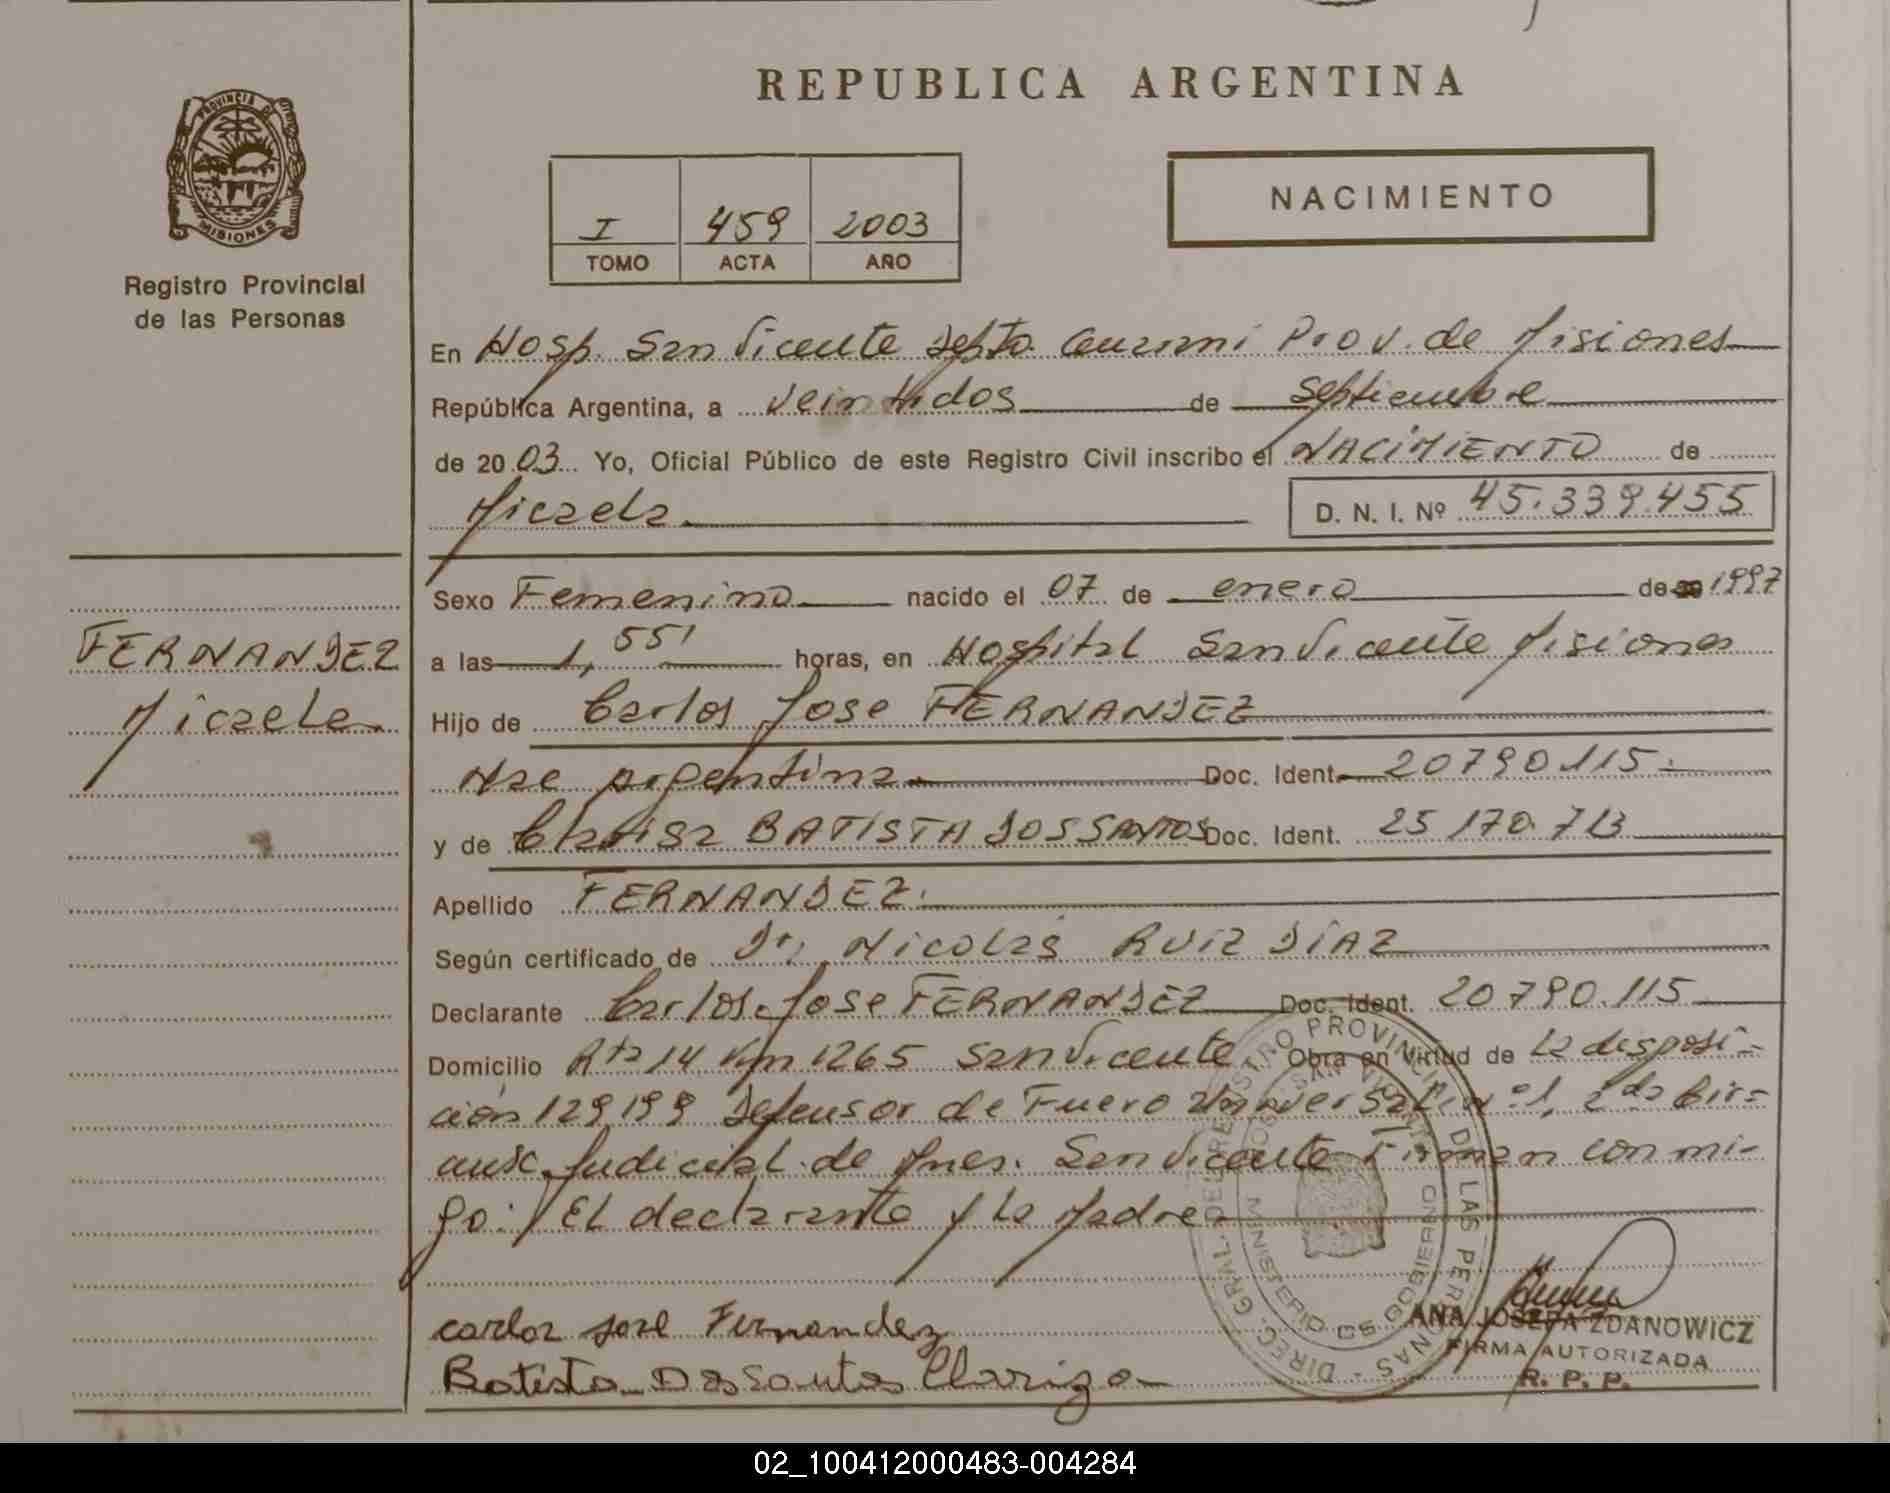 REPUBLICA ARGENTINA
PROVINCIA DE
MISIONES
Registro Provincial
de las Personas
I 459 2003
TOMO ACTA AÑO
NACIMIENTO
En Hosp. San Vicente Depto. Guarani Prov. de Misiones
República Argentina, a veintidos de septiembre
de 2003 Yo, Oficial Público de este Registro Civil inscribo el NACIMIENTO de
Micaela D. N. I. Nº 45.339.455
FERNANDEZ
Micaela
Sexo Femenino nacido el 07 de enero de 1997
a las 1,55' horas, en Hospital San Vicente Misiones
Hijo de Carlos Jose FERNANDEZ
Nac argentina Doc. Ident. 20790.115.
y de Clarisa BATISTA DOS SANTOS Doc. Ident. 25 170.713
Apellido FERNANDEZ.
Según certificado de Dr. Nicolas RUIZ DÍAZ
Declarante Carlos Jose FERNANDEZ Doc. Ident. 20790.115
Domicilio Rta 14 Km 1265 San Vicente Obra en Virtud de la disposi-
ción 129199 Defensor de Fuero Universal nº1, 2da Cir-
cunsc. Judicial de Mnes. San Vicente Firman conmi-
go: El declarante y la Madre
carlos jose Fernandez
Batista Dos Santos Clariza
DIREC. GRAL. DEL REGISTRO PROVINCIAL DE LAS PERSONAS
MINISTERIO DE GOBIERNO
ANA JOSEFA ZDANOWICZ
FIRMA AUTORIZADA
R. P. P.
02_100412000483-004284